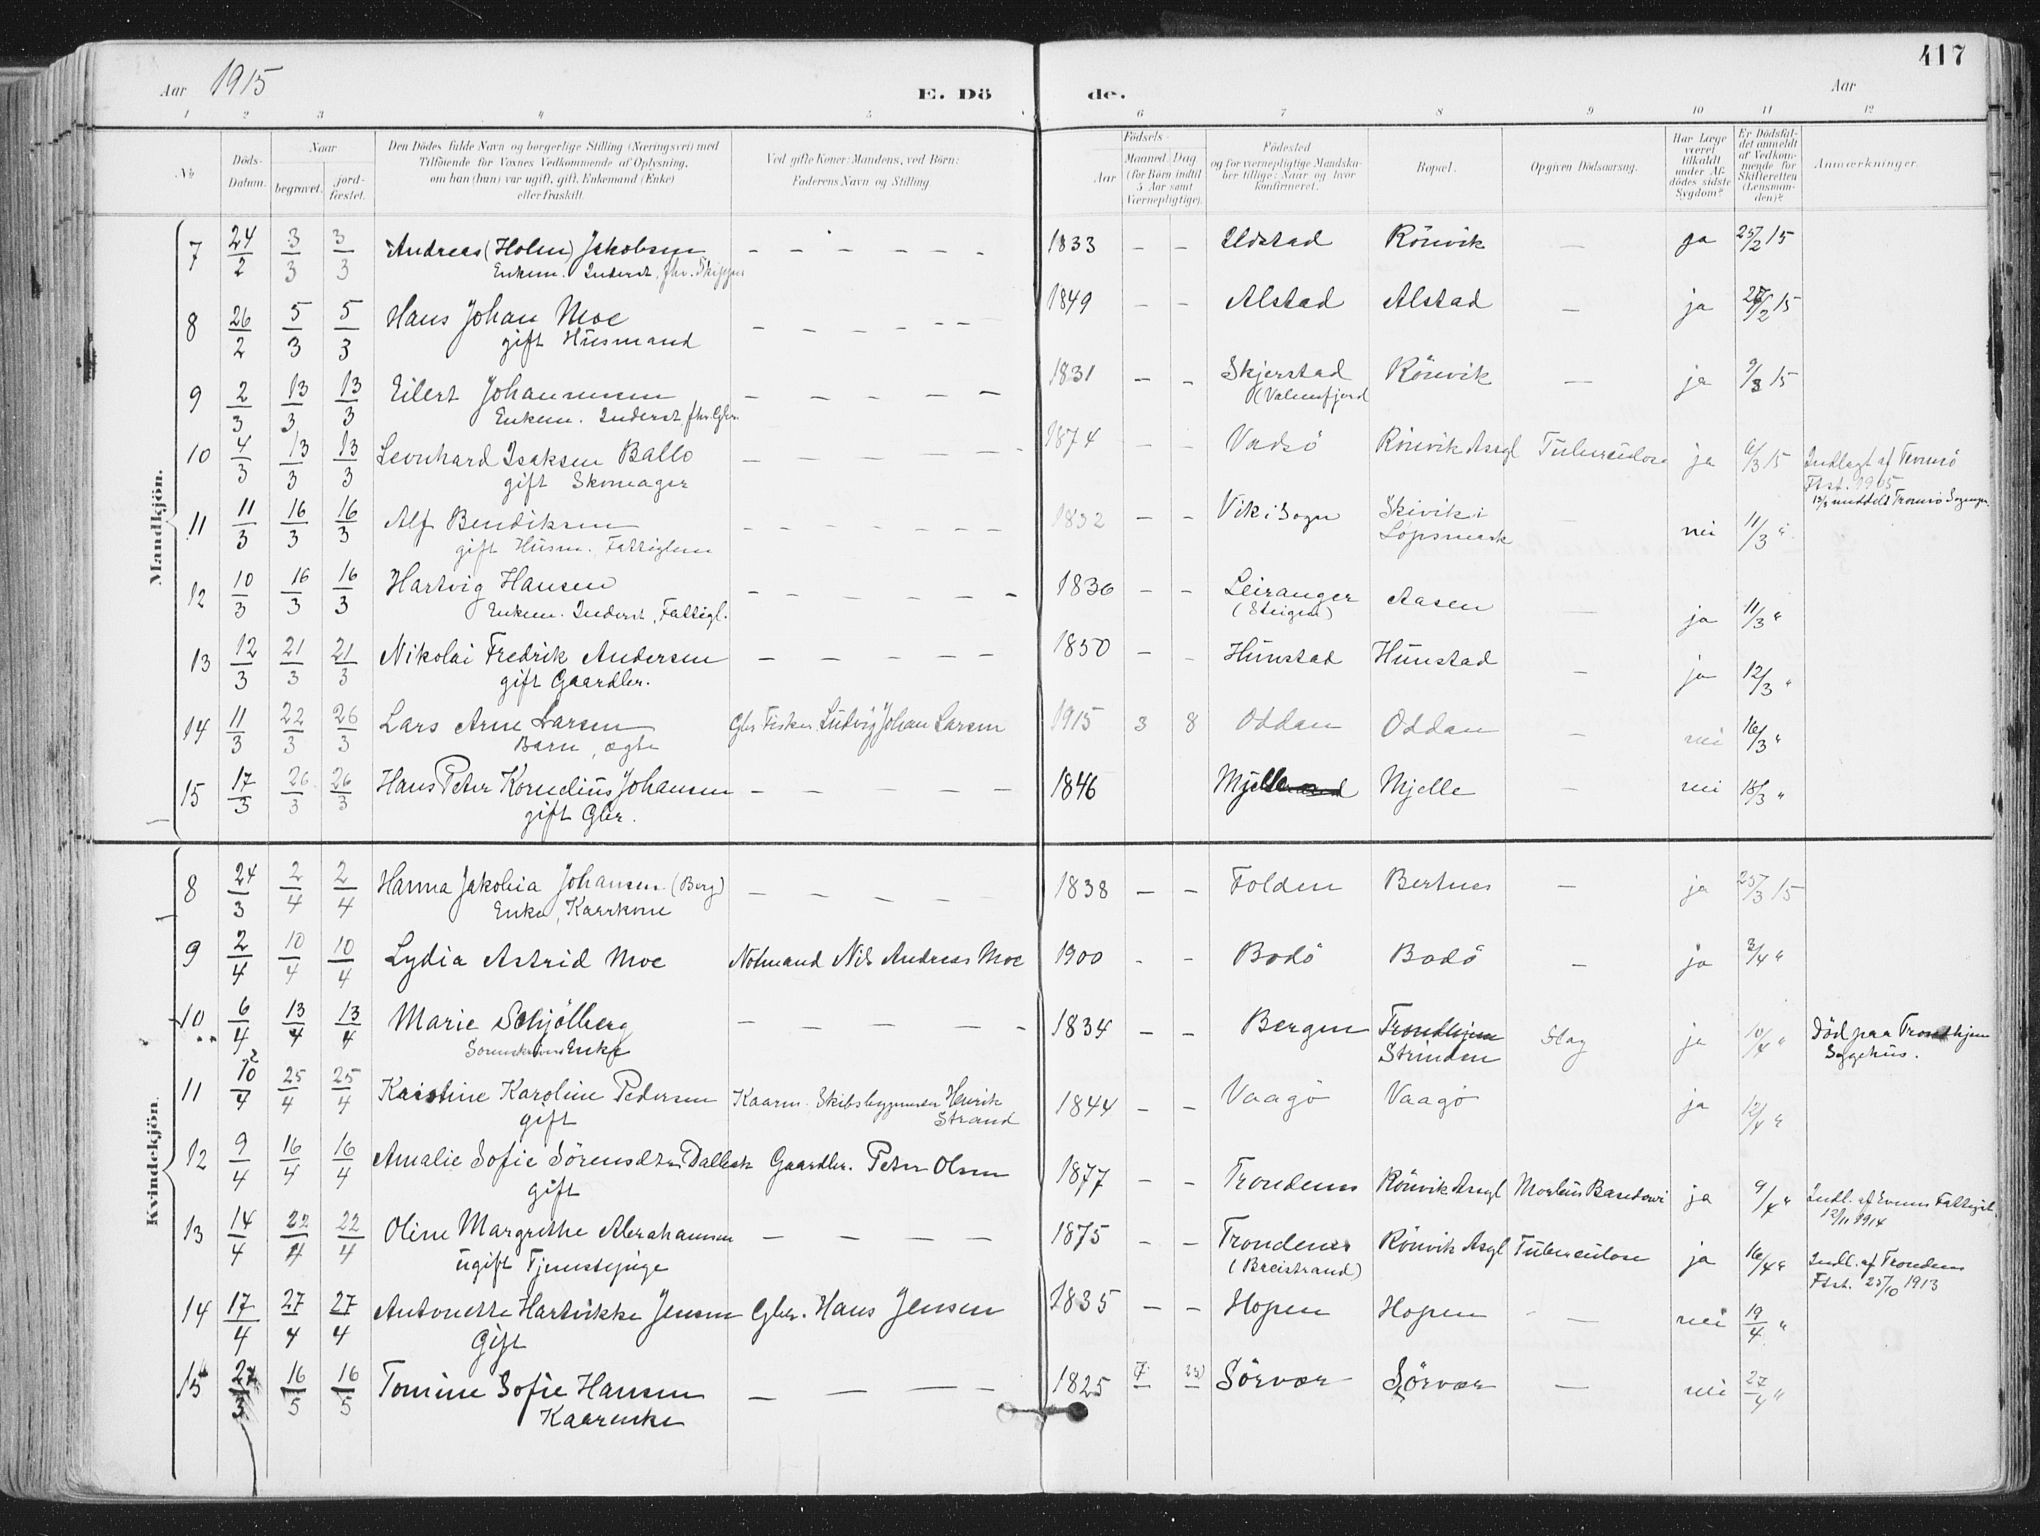 417
Aar 1915
E. Dö de.
Aar
1 2 3 4 5 6 7 8 9 10 11 12
№
Döds-Datum.
Naar
begravet.
jord-fæstet.
Den Dödes fulde Navn og borgerlige Stilling (Næringsvei) med
Tilföiende for Voxnes Vedkommende af Oplysning,
om han (hun) var ugift, gift, Enkemand (Enke)
eller fraskilt.
Ved gifte Koner: Mandens, ved Börn:
Faderens Navn og Stilling.
Födsels-
Aar
Maaned Dag
(for Börn indtil
5 Aar samt
Værnepligtige).
Födested
og for værnepligtige Mandska-
ber tillige: Naar og hvor
konfirmeret.
Bopæl.
Opgiven Dödsaarsag.
Har Læge
været
tilkaldt
under Af-
dödes sidste
Sygdom?
Er Dödsfal-
det anmeldt
af Vedkom-
mende for
Skifteretten
(Lensman-
den)?
Anmærkninger.
Mandkjön.
7 24/2 3/3 3/3 Andreas (Holm) Jakobsen — — — — — 1833 – – Ildstad Rönvik — ja 25/2 15
Enkem. Inderst, fhv. Skipper
8 26/2 5/3 5/3 Hans Johan Moe — — — — — 1849 – – Alstad Alstad — ja 27/2 15
gift Husmand
9 2/3 13/3 13/3 Eilert Johannesen — — — — — 1831 – – Skjerstad Rönvik — ja 9/3 15
Enkem. Inderst fhv. Gbr. (Valnesfjord
10 4/3 13/3 13/3 Leonhard Isaksen Ballo — — — — — 1874 – – Vadsö Rönvik Asyl Tuberculose ja 6/3 15 Indlagt af Tromsö
gift Skomager Ftst. 1905
12/3 meddelt Tromsö Sognepr.
11 11/3 16/3 16/3 Alf Bendiksen — — — — — 1832 – – Vik i Sogn Skivik i — nei 11/3 "
gift Husm. Fattiglem Löpsmark
12 10/3 16/3 16/3 Hartvig Hansen — — — — — 1836 – – Leiranger Aasen — ja 11/3 "
Enkem. Inderst, Fattigl. (Steigen)
13 12/3 21/3 21/3 Nikolai Fredrik Andersen — — — — — 1850 – – Hunstad Hunstad — ja 12/3 "
gift Gaardbr.
14 11/3 22/3 26/3 Lars Arne Larsen Gbr Fisker Ludvig Johan Larsen 1915 3 8 Oddan Oddan — nei 16/3 "
Barn, ægte
15 17/3 26/3 26/3 Hans Peter Kornelius Johansen — — — — — 1846 Mjelle Mjelle — nei 18/3 "
gift Gbr.
Kvindekjön.
8 24/3 2/4 2/4 Hanna Jakobia Johansen (Berg) — — — — — 1838 – – Folden Bertnes — ja 25/3 15
Enke, Kaarkone
9 2/4 10/4 10/4 Lydia Astrid Moe Notmand Nils Andreas Moe 1900 – – Bodö Bodö — ja 3/4 "
10 6/4 13/4 13/4 Marie Schjölberg — — — — — 1834 – – Bergen Trondhjem Slag ja 10/4 " Död paa Trondhjem
Sorenskrivers Enke Strinden Sygehus.
11 10/4 25/4 25/4 Kaistine Karoline Pedersen Kaarm. Skibsbygmester Henrik 1844 – – Vaagö Vaagö ja 12/4 "
gift Strand
12 9/4 16/4 16/4 Amalie Sofie Sörensdtr Dalbak Gaardbr. Peter Olsen 1877 – – Trondenes Rönvik Asyl Morbus Basedowi ja 9/4 " Indl. af Evenes Fattigst.
gift 12/11 1914
13 14/4 22/4 22/4 Oline Margrethe Abrahamsen — — — — 1875 – – Trondenes Rönvik Asyl Tuberculose ja 16/4 " Indl. af Trondenes
ugift Tjenestepige (Breistrand) Ftst. 25/10 1913
14 17/4 27/4 27/4 Antonette Hartvikke Jensen Gbr. Hans Jensen 1835 – – Hopen Hopen — nei 19/4 "
Gift
15 27/3 16/5 16/5 Tomine Sofie Hansen — — — — 1825 7 23 Sörvær Sörvær — nei 27/4 "
Kaarenke